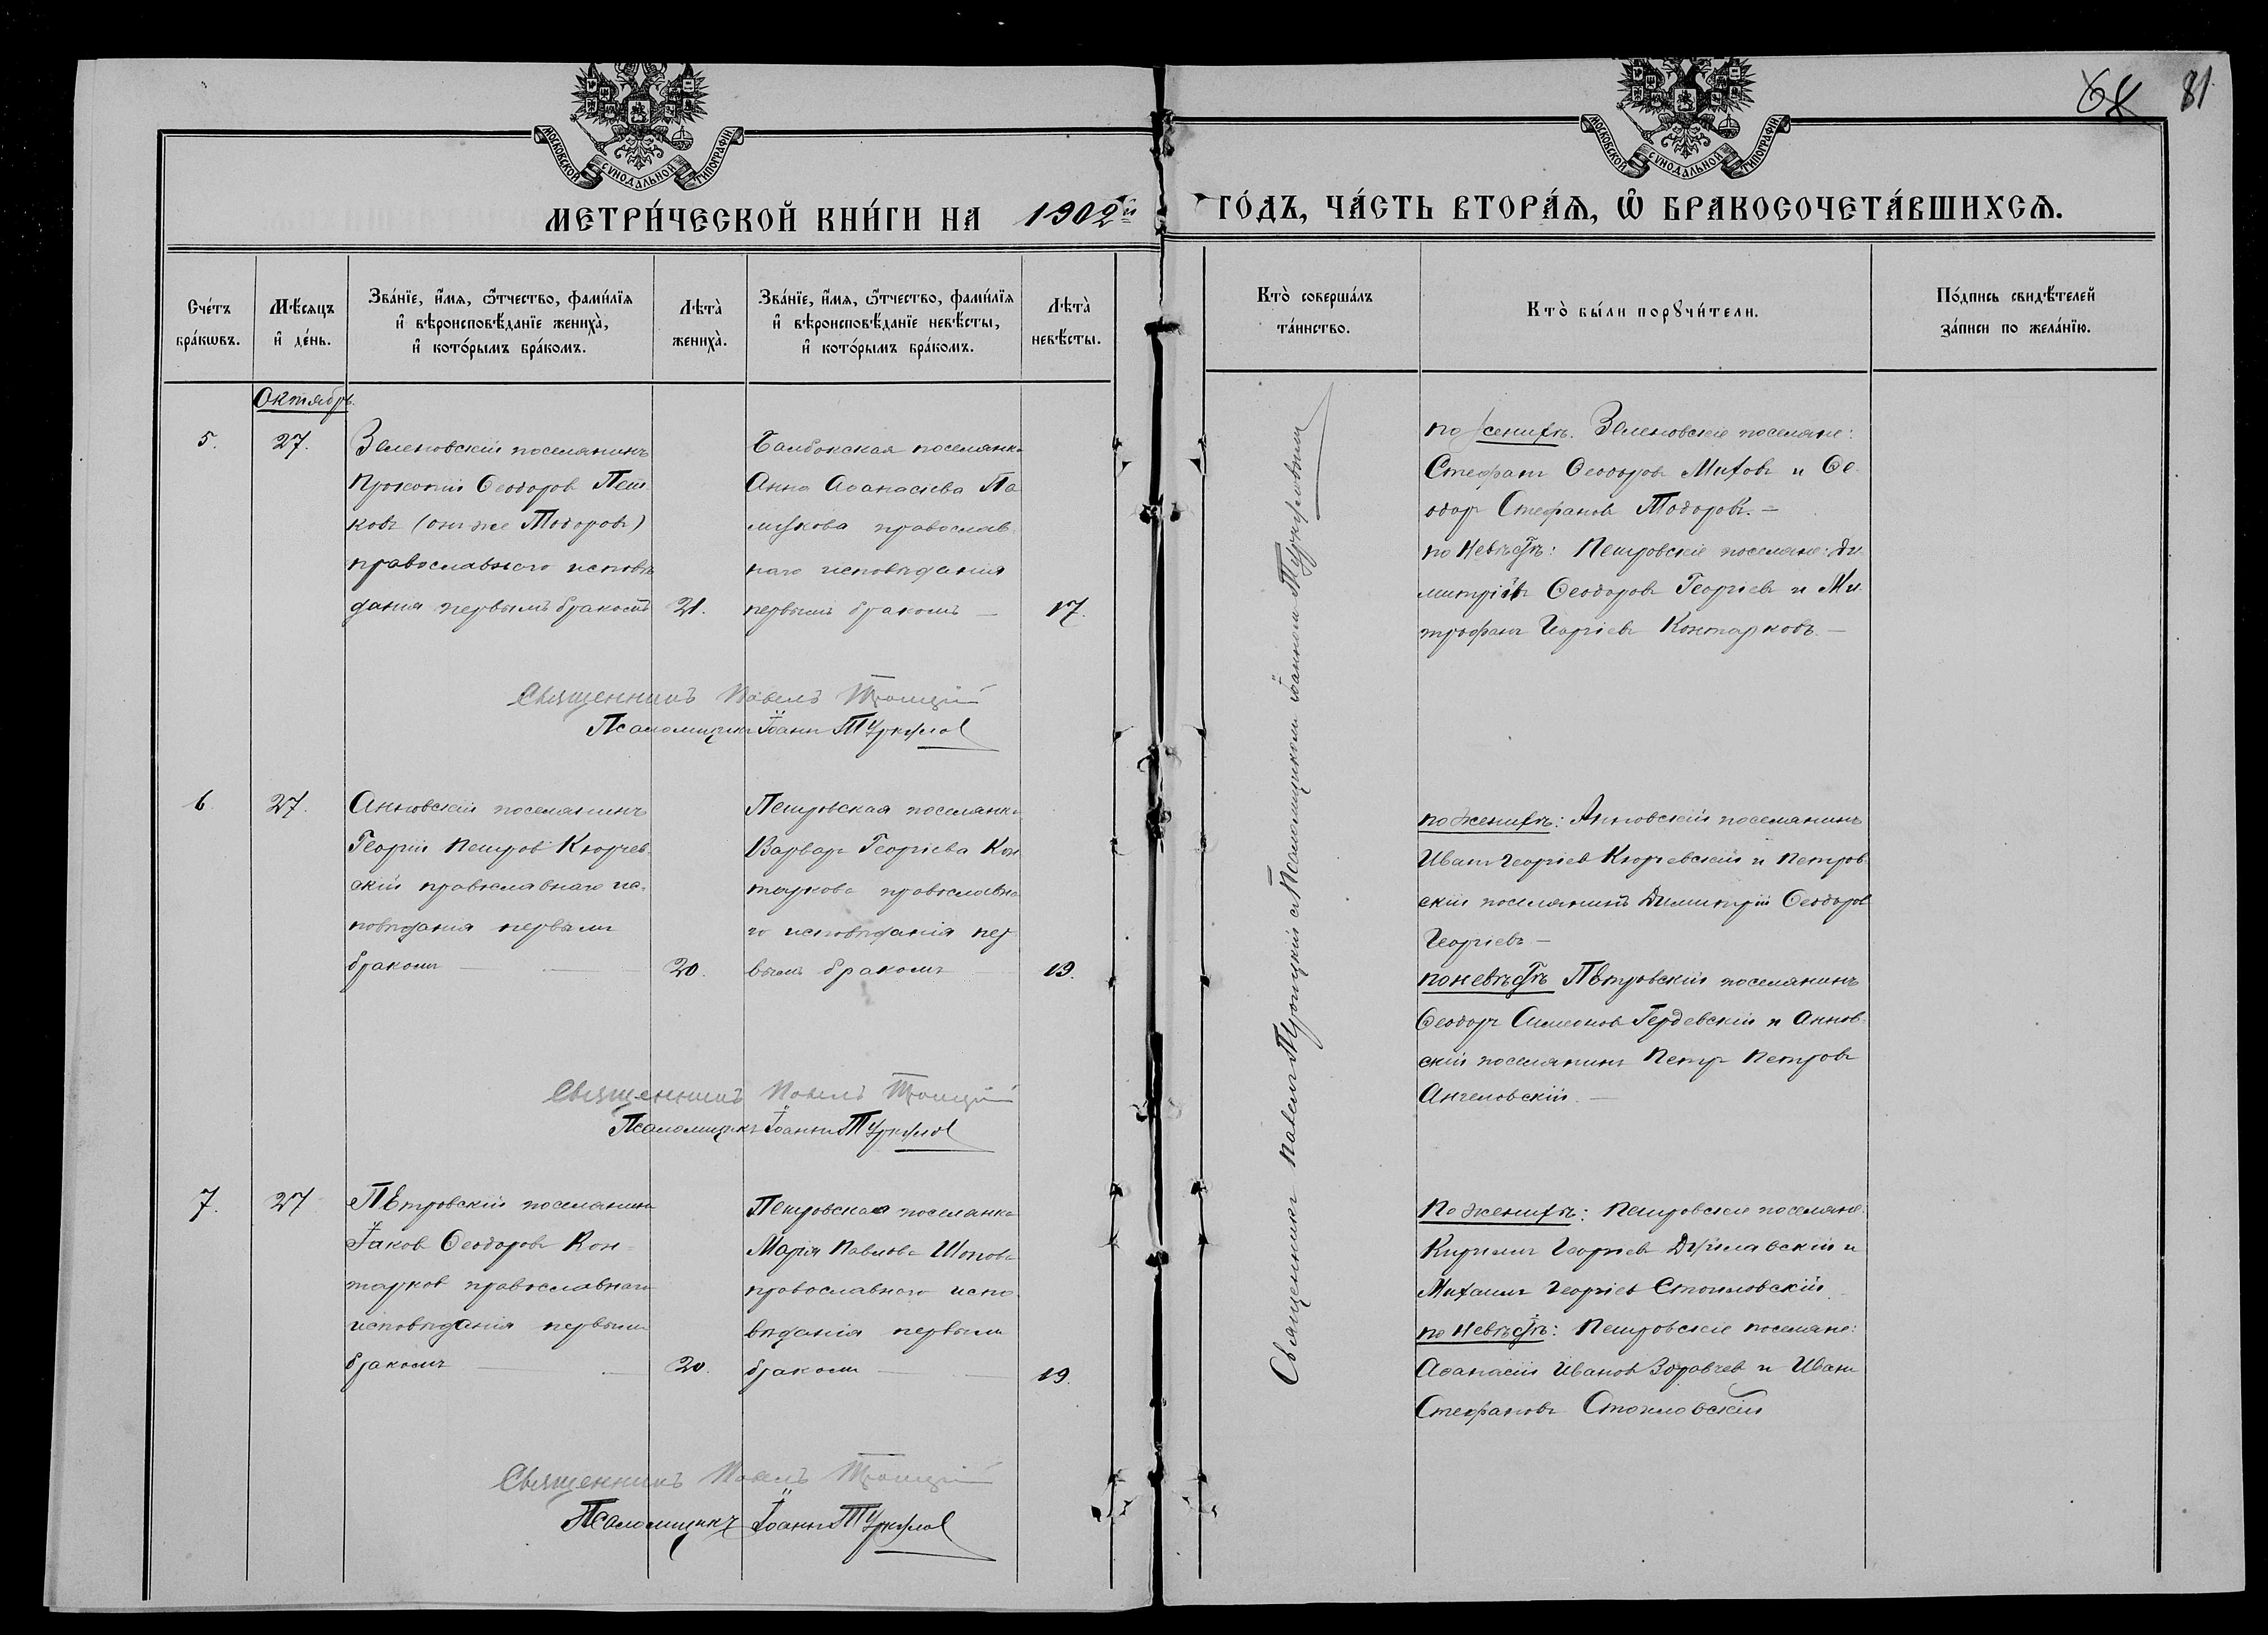 68 81
МОСКОВСКОЙ СѴНОДАЛЬНОЙ ТИПОГРАФІИ
МОСКОВСКОЙ СѴНОДАЛЬНОЙ ТИПОГРАФІИ
МЕТРИ́ЧЕСКОЙ КНИ́ГИ НА 1902й ГО́ДЪ, ЧА́СТЬ ВТОРА́Ѧ, Ѽ БРАКОСОЧЕТА́ВШИХСѦ.
Сче́тъ
бра́кѡвъ.
Мѣ́сѧцъ
и҆ де́нь.
Зва́нїе, и҆́мѧ, ѻ҆́тчество, фами́лїѧ
и҆ вѣроисповѣ́данїе жениха̀,
и҆ кото́рымъ бра́комъ.
Лѣта̀
жениха̀.
Зва́нїе, и҆́мѧ, ѻ҆́тчество, фами́лїѧ
и҆ вѣроисповѣ́данїе невѣ́сты,
и҆ кото́рымъ бра́комъ.
Лѣта̀
невѣ́сты.
Кто̀ соверша́лъ
та́инство.
Кто̀ бы́ли порꙋчи́тели.
По́дпись свидѣ́телей
за́писи по жела́нїю.
Октябрь.
5.
27.
Зеленовскій поселянинъ
Прокопій Ѳеодоровъ Пет
ковъ (онъ же Тодоровъ)
православнаго исповѣ
данія первымъ бракомъ
21.
поселянка
Анна Аѳанасіева Па
православ
наго исповѣданія
первымъ бракомъ —
17.
по женихѣ. Зеленовскіе поселяне:
Стефанъ Ѳеодоровъ Митовъ и Ѳе
одоръ Стефановъ Тодоровъ. —
по невѣстѣ: Петровскіе поселяне: Ди
митрій Ѳеодоровъ Георгіевъ и Ми
трофанъ Георгіевъ Контарковъ. —
Священникъ Павелъ Троицкій
Псаломщикъ Іоаннъ
6.
27.
Анновскій поселянинъ
Георгій Петровъ Кюрчев
скій православнаго ис
повѣданія первымъ
бракомъ —
20.
Петровская поселянка
Варвара Георгіева Кон
таркова православна
го исповѣданія пер
вымъ бракомъ
19.
по женихѣ: Анновскій поселянинъ
Иванъ Георгіевъ Кюрчевскій и Петров
скій поселянинъ Димитрій Ѳеодоровъ
Георгіевъ —
по невѣстѣ Петровскій поселянинъ
Ѳеодоръ Симеоновъ Гердевскій и Аннов
скій поселянинъ Петръ Петровъ
Ангеловскій. —
Священникъ Павелъ Троицкій
Псаломщикъ Іоаннъ
7.
27
Петровскій поселянинъ
Іаковъ Ѳеодоровъ Кон
тарковъ православнаго
исповѣданія первымъ
бракомъ —
20.
Петровская поселянка
Марія Павлова Шопова
православнаго испо
вѣданія первымъ
бракомъ —
19.
По женихѣ: Петровскіе поселяне:
Кириллъ Георгіевъ и
Михаилъ Георгіевъ Стоиловскій.
по невѣстѣ: Петровскіе поселяне:
Аѳанасій Ивановъ Здравчевъ и Иванъ
Стефановъ Стоиловскій
Священникъ Павелъ Троицкій
Псаломщикъ Іоаннъ
Священникъ Павелъ Троицкій съ Псаломщикомъ Іоанномъ